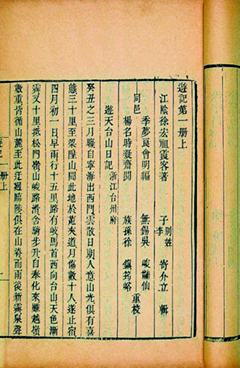 遊記第一冊上
江陰徐宏祖霞客著 子李 寄介立 輯
季夢良會明編 無錫吳 峻 仙
同邑
楊名時凝齋閱 族孫徐 鎮筠峪 重校
遊天台山日記 浙江台州府
癸丑之三月晦自寧海出西門雲散日朗人意山光俱有喜
態三十里至梁隍山聞此地於菟夾道月傷數十人遂止宿
四月初一日早雨行十五里路有岐馬首西向台山天色漸
霽又十里抵松門嶺山峻路滑舍騎步行自奉化來雖越嶺
數重皆循山麓至此迂迴臨陟俱在山脊而雨後新霽泉聲
一冊上